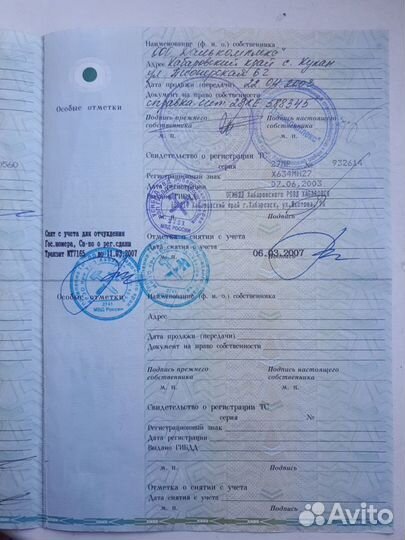 Наименование (ф. и. о.) собственника
ООО
Адрес Хабаровский край с. Кукан
ул
Дата продажи (передачи) 22.04.2003
Документ на право собственности
Особые отметки
справка-счет 588345
Подпись прежнего собственника
Подпись настоящего собственника
м. п.
м. п.
Свидетельство о регистрации ТС
серия 27МР № 932614
0560
Регистрационный знак Х634МН27
Дата регистрации 07.06.2003
Выдано ГИБДД
Хабаровского
Хабаровский край г.Хабаровск, ул.
МВД РОССИИ
Подпись
Снят с учета для отчуждения
Гос.номера, Св-во о рег.сданы
Транзит до 11.03.2007
Отметка о снятии с учета
Дата снятия с учета 06.03.2007
м. п.
Подпись
2141
МВД России
2141
Особые отметки
Наименование (ф. и. о.) собственника
Адрес
Дата продажи (передачи)
Документ на право собственности
Подпись прежнего собственника
Подпись настоящего собственника
м. п.
м. п.
Свидетельство о регистрации ТС
серия №
Регистрационный знак
Дата регистрации
Выдано ГИБДД
м. п.
Подпись
Отметка о снятии с учета
Дата снятия с учета
м. п.
Подпись
Avito